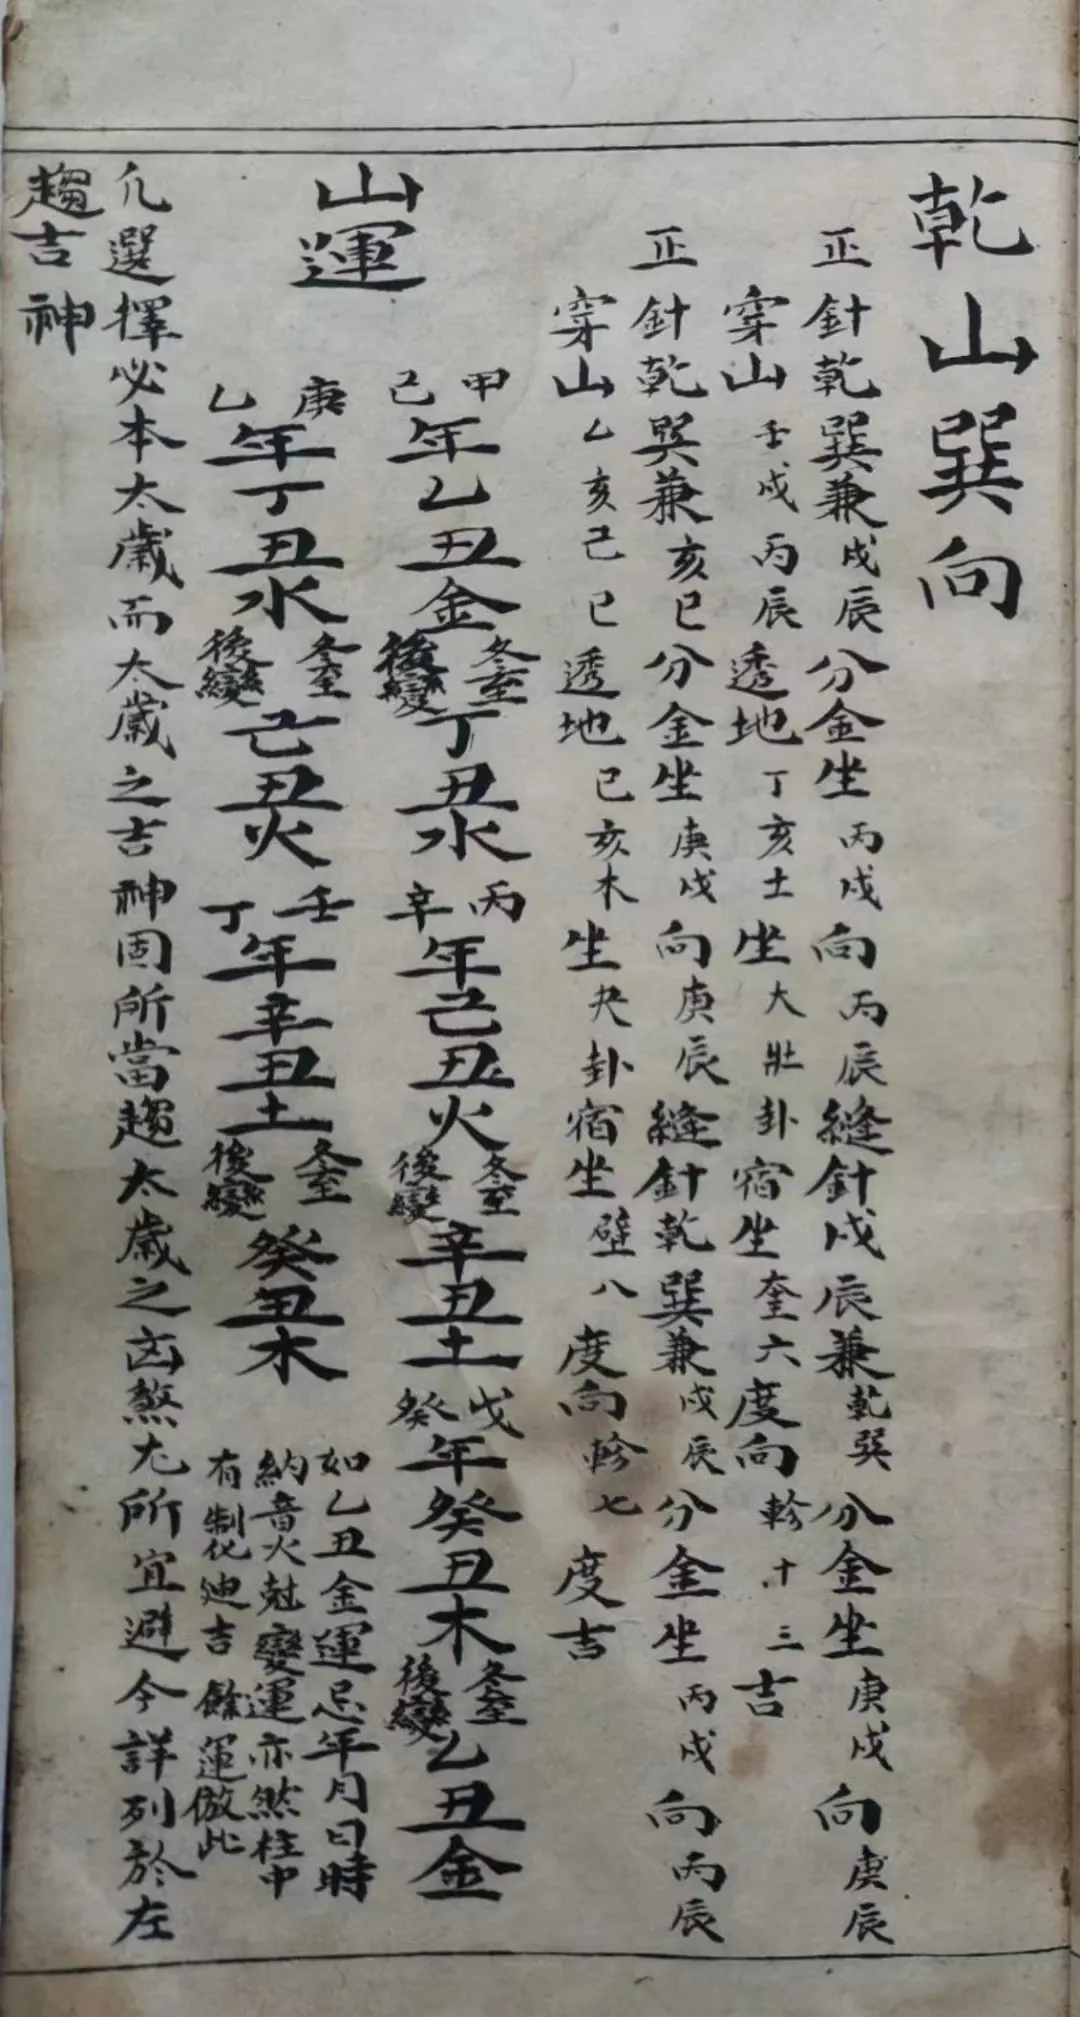 乾山巽向
正針乾巽兼戌辰分金坐丙戌向丙辰縫針戌辰兼乾巽分金坐庚戌向庚辰
穿山壬戌丙辰透地丁亥土坐大壯卦宿坐奎六度向軫十三吉
正針乾巽兼亥巳分金坐庚戌向庚辰縫針乾巽兼戌辰分金坐丙戌向丙辰
穿山乙亥己巳透地己亥木坐夬卦宿坐壁八度向軫七度吉
山運
甲己年乙丑金冬至後變丁丑水丙辛年己丑火冬至後變辛丑土戊癸年癸丑木冬至後變乙丑金
庚乙年丁丑水冬至後變己丑火壬丁年辛丑土冬至後變癸丑木
如乙丑金運忌年月日時
納音火尅變運亦然柱中
有制化迪吉餘運倣此
凢選擇必本太歲而太歲之吉神固所當趨太歲之凶煞尤所宜避今詳列於左
趨吉神